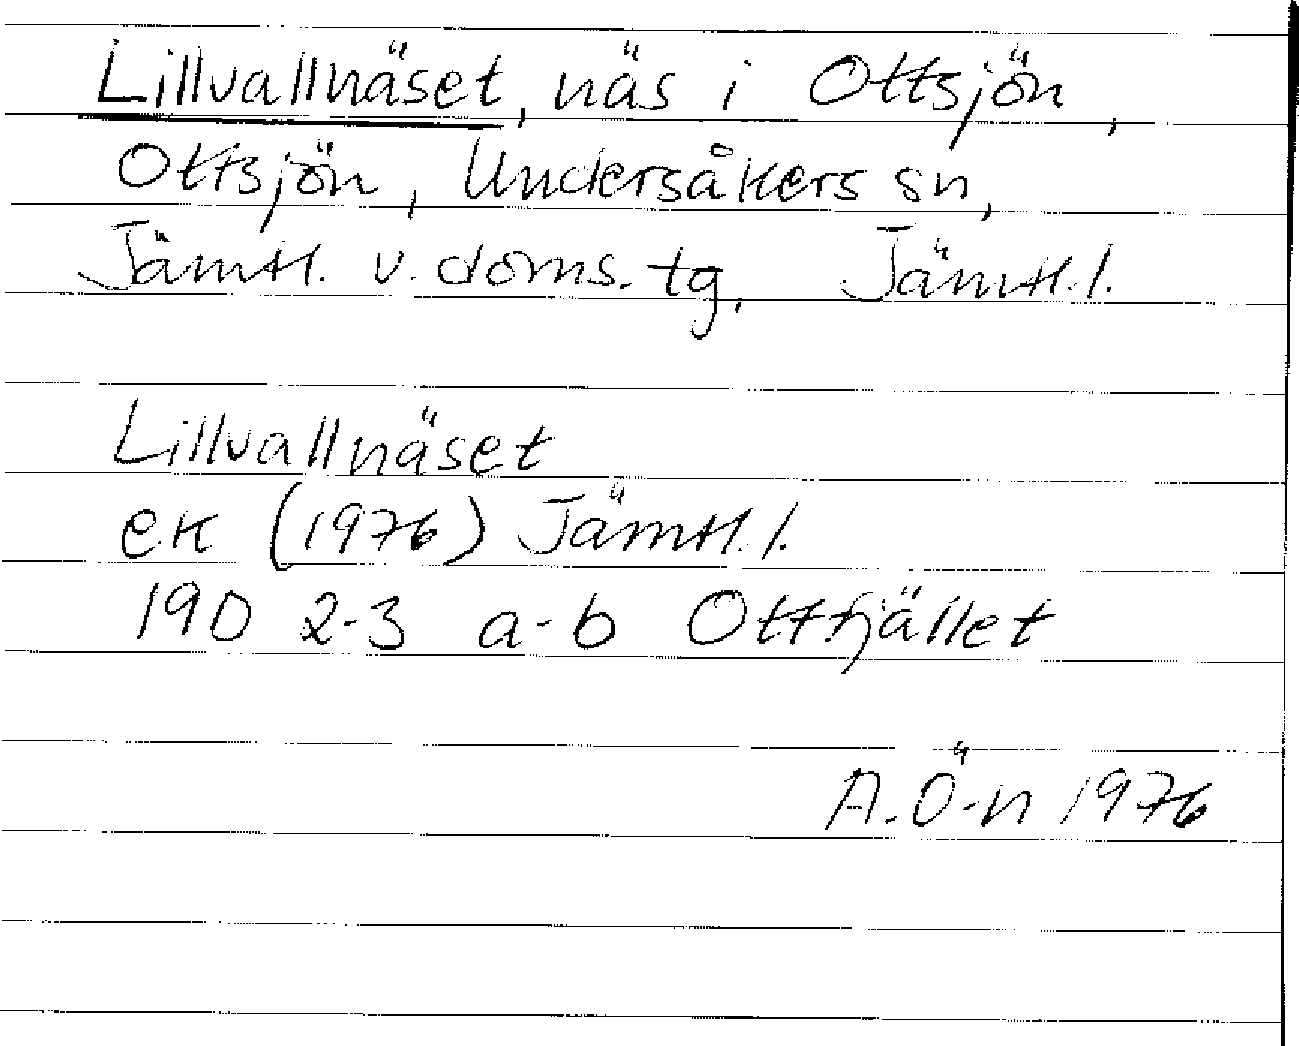 Lillvallnäset, näs i Ottsjön,
Ottsjön, Undersåkers sn,
Jämtl. v. doms. tg, Jämtl. l.
Lillvallnäset
ek (1976) Jämtl. l.
19D 2-3 a-b Ottfjället
A. Ö-n 1976